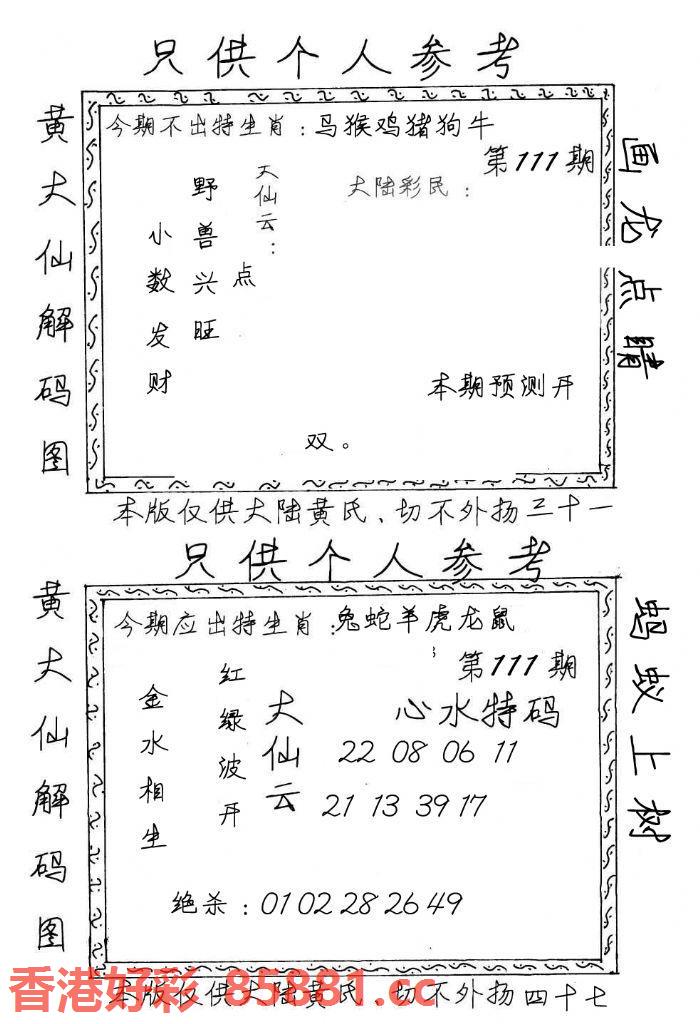 只供个人参考
黄大仙解码图
今期不出特生肖：马猴鸡猪狗牛
第111期
大仙云：
大陆彩民：
野兽兴旺
小数发财
点
本期预测开
双。
画龙点睛
本版仅供大陆黄氏、切不外扬三十一
只供个人参考
黄大仙解码图
今期应出特生肖：兔蛇羊虎龙鼠
第111期
金水相生
红绿波开
大仙云
心水特码
22 08 06 11
21 13 39 17
绝杀：01 02 28 26 49
蚂蚁上树
本版仅供大陆黄氏、切不外扬四十七
香港好彩 85881.cc